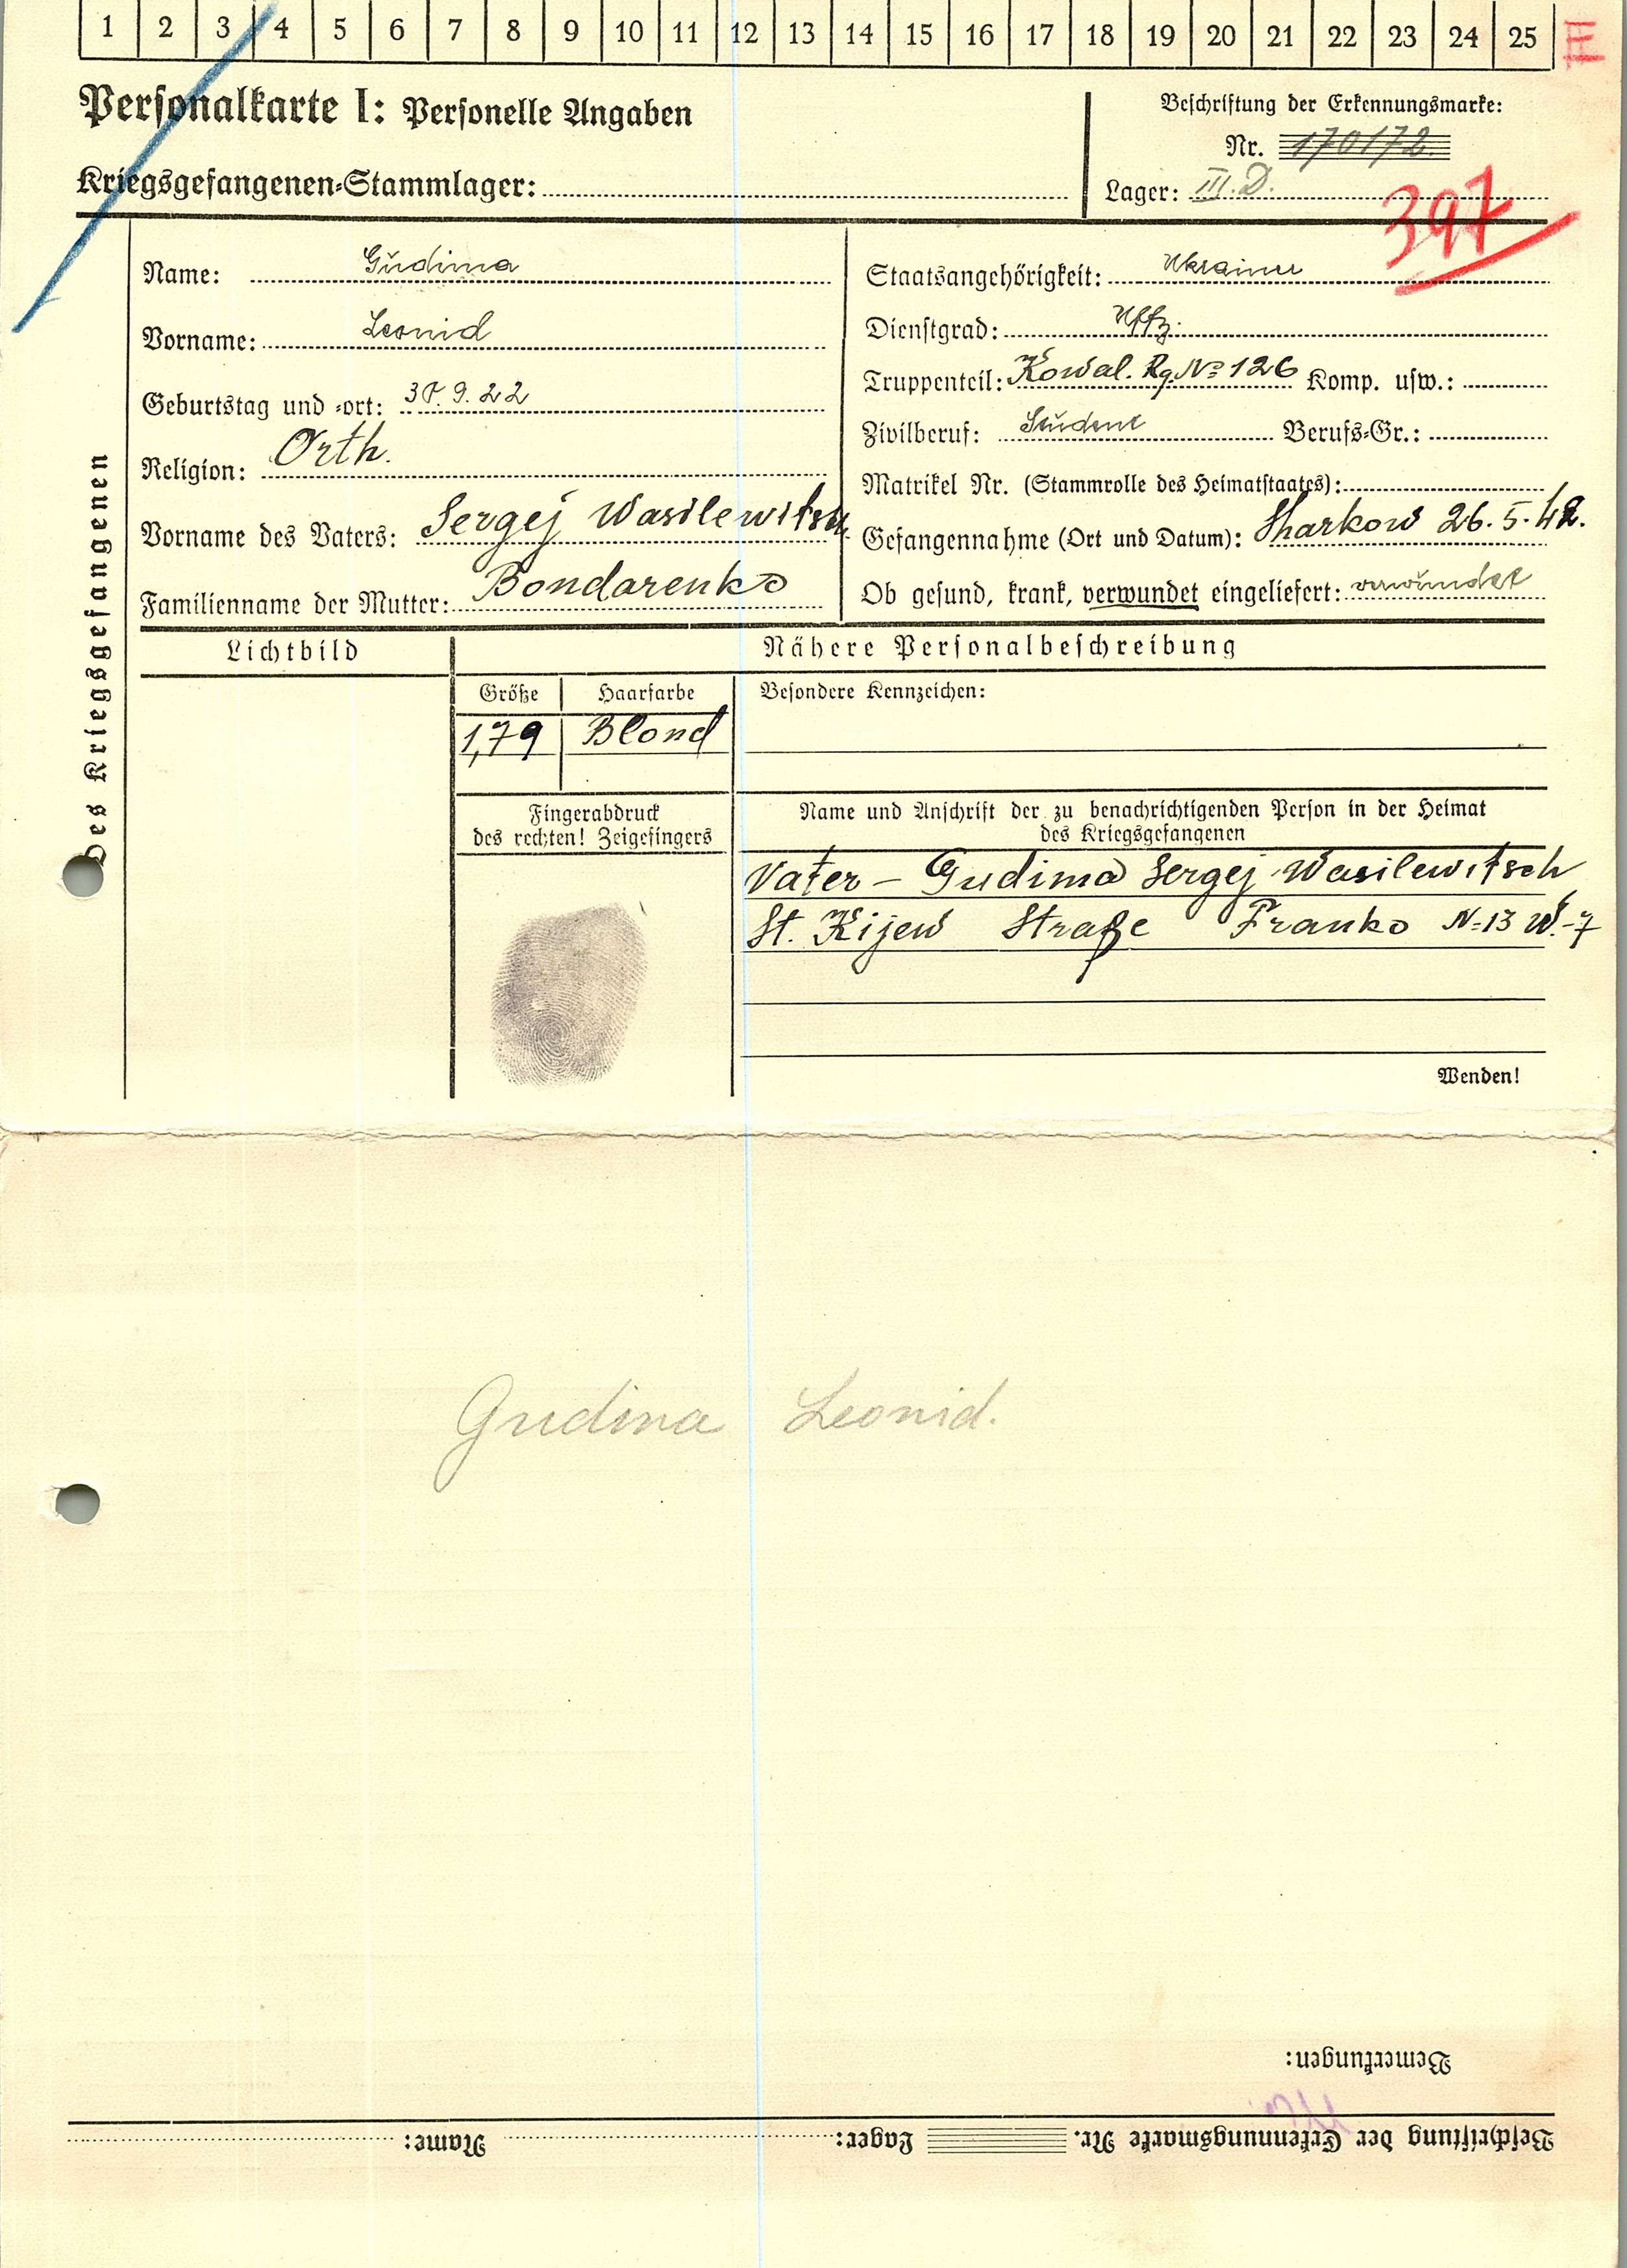 1 2 3 4 5 6 7 8 9 10 11 12 13 14 15 16 17 18 19 20 21 22 23 24 25 III
Personalkarte I: Personelle Angaben
Kriegsgefangenen-Stammlager:
Beschriftung der Erkennungsmarke:
Nr. 170172
Lager: III. D.
397
Des Kriegsgefangenen
Name: Gudima
Vorname: Leonid
Geburtstag und -ort: 30.9.22
Religion: Orth.
Vorname des Vaters: Sergej Wasilewitsch
Familienname der Mutter: Bondarenko
Staatsangehörigkeit: Ukrainer
Dienstgrad: Uffz.
Truppenteil: Kowal. Rg. № 126 Komp. usw.:
Zivilberuf: Student Berufs-Gr.:
Matrikel Nr. (Stammrolle des Heimatstaates):
Gefangennahme (Ort und Datum): Sharkow 26.5.42.
Ob gesund, krank, verwundet eingeliefert: verwundet
Lichtbild
Nähere Personalbeschreibung
Größe Haarfarbe Besondere Kennzeichen:
1,79 Blond
Fingerabdruck
des rechten! Zeigefingers
Name und Anschrift der zu benachrichtigenden Person in der Heimat
des Kriegsgefangenen
Vater – Gudima Sergej Wasilewitsch
St. Kijew Straße Franko N=13 W.-7
Wenden!
Gudima Leonid.
Bemerkungen:
Beschriftung der Erkennungsmarke Nr. Lager: Name: